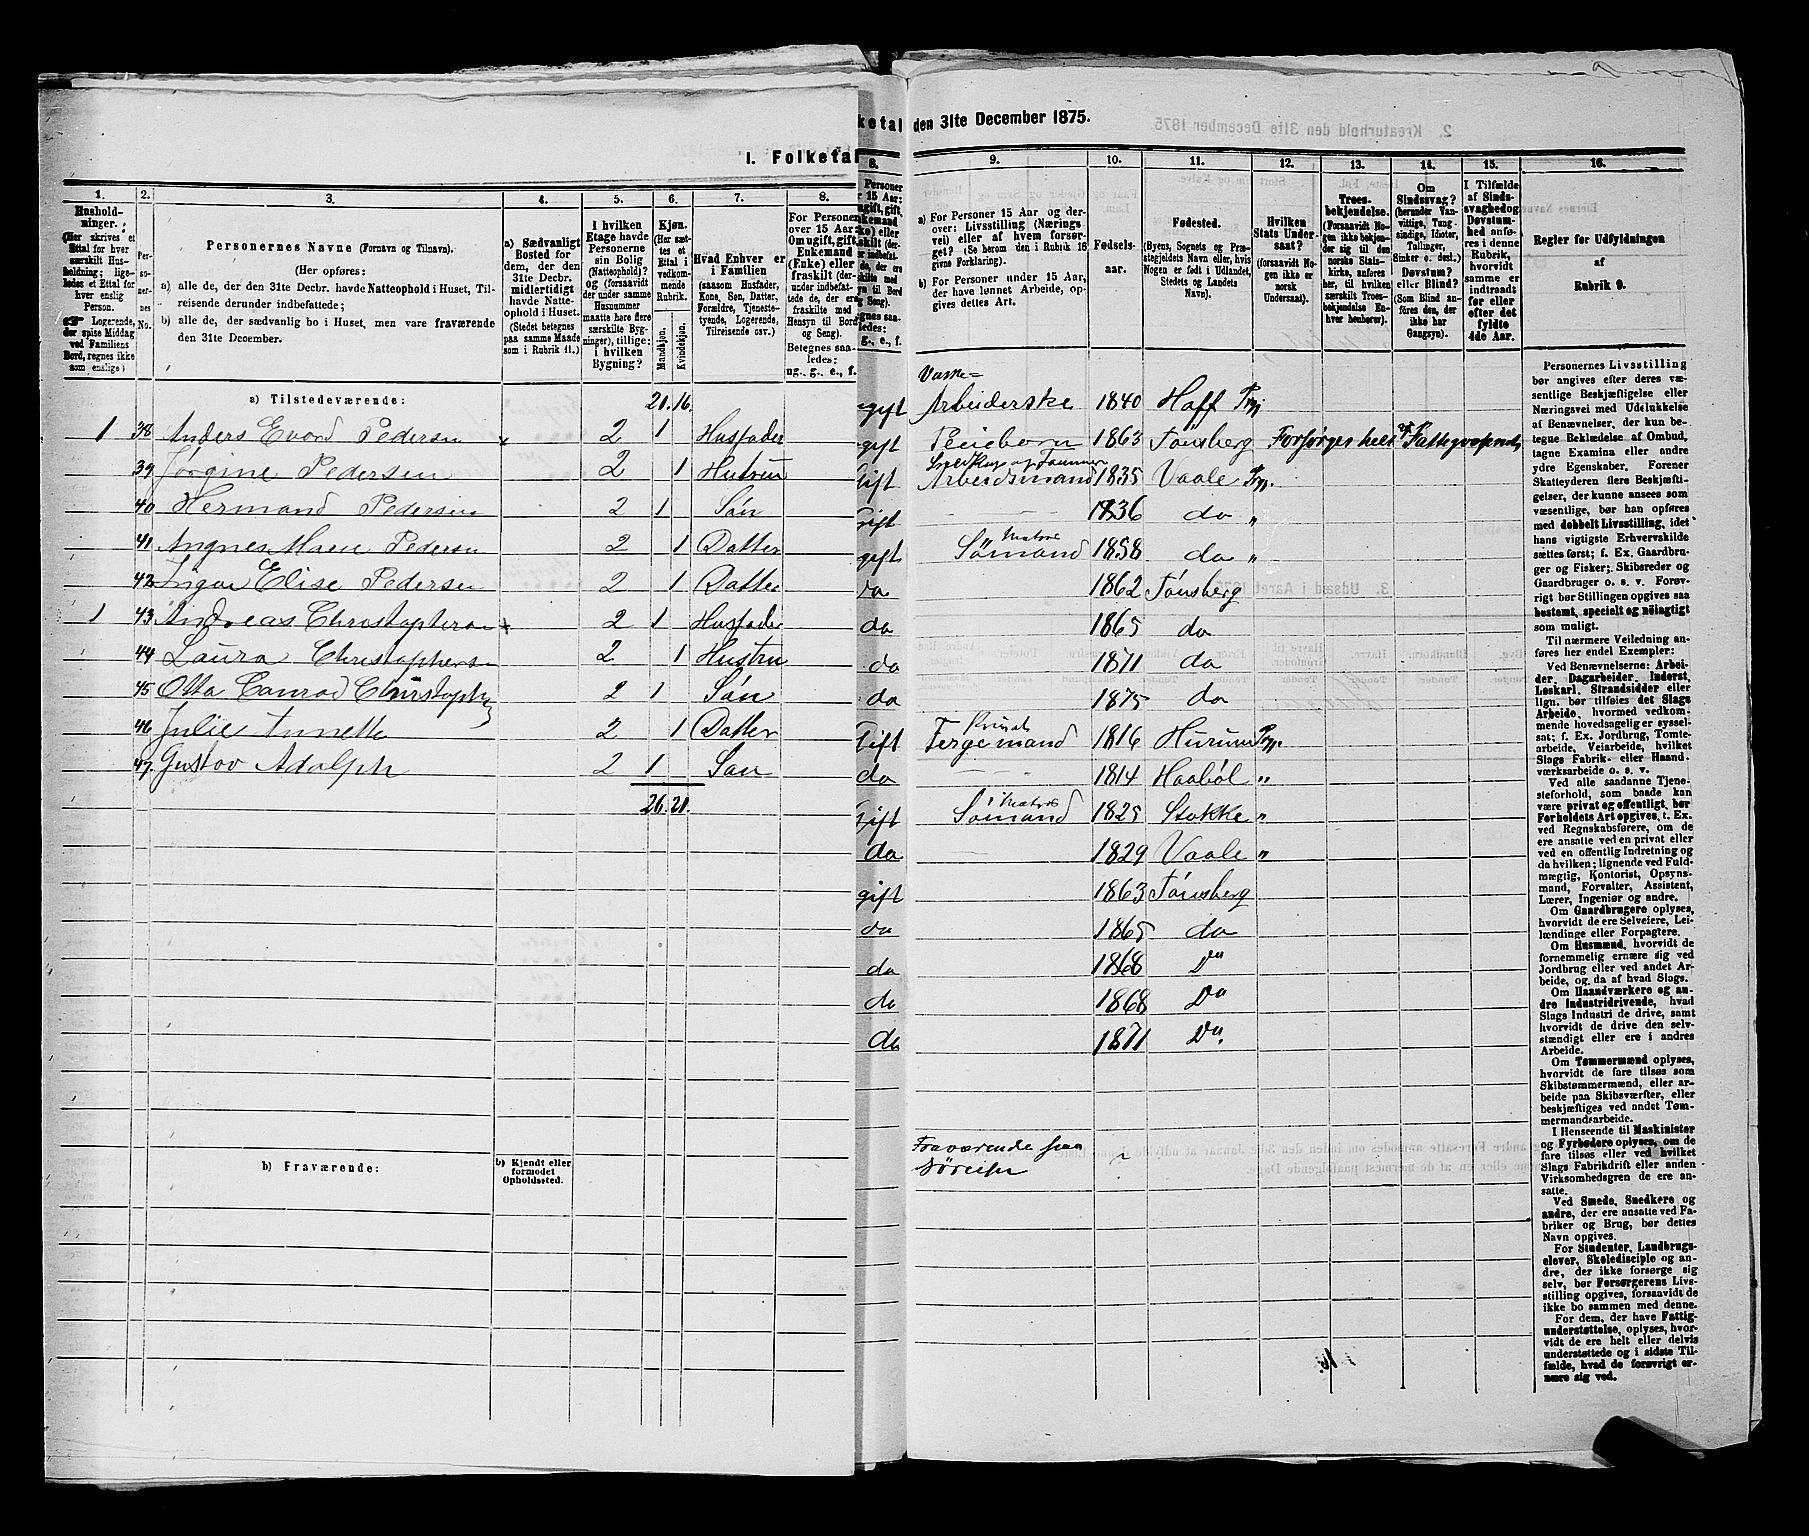 I. Folketal
1. 2. 3. 4. 5. 6. 7. 8.
Hushold-
ninger.
(Her skrives et
Ettal for hver
særskilt Hus-
holdning; lige-
ledes et Ettal for
hver enslig
Person.
Logerende,
der spise Middag
ved Familiens
Bord, regnes ikke
som enslige)
Per-
so-
ner-
nes
No.
Personernes Navne (Fornavn og Tilnavn).
(Her opføres:
a) alle de, der den 31te Decbr. havde Natteophold i Huset, Til-
reisende derunder indbefattede;
b) alle de, der sædvanlig bo i Huset, men vare fraværende
den 31te December.
a) Sædvanligt
Bosted for
dem, der den
31te Decbr.
midlertidigt
havde Natte-
ophold i Huset.
(Stedet betegnes
paa samme Maade
som i Rubrik 11.)
I hvilken
Etage havde
Personerne
sin Bolig
(Natteophold)?
og (forsaavidt
der under samme
Husnummer
maatte høre flere
særskilte Byg-
ninger), tillige:
i hvilken
Bygning?
Kjøn.
(Her sæt-
tes et
Ettal i
vedkom-
mende
Rubrik.
Mandkjøn.
Kvindekjøn.
Hvad Enhver er
i Familien
(saasom Husfader,
Kone, Søn, Datter,
Forældre, Tjeneste-
tyende, Logerende,
Tilreisende osv.)
For Personer
over 15 Aar:
Om ugift, gift,
Enkemand
(Enke) eller
fraskilt (der-
under indbefat-
tede de, der ere
fraskilte med
Hensyn til Bord
og Seng).
Betegnes saa-
ledes:
ug., g., e., f.
a) Tilstedeværende: 21. 16.
1 38 Anders Evord Pedersen 2 1 Husfader
39 Jørgine Pedersen 2 1 Hustru
40 Hermand Pedersen 2 1 Søn
41 Angnes Marie Pedersen 2 1 Datter
42 Elise Pedersen 2 1 Datter
1 43 Andreas Christophersen 2 1 Husfader
44 Laura Christophersen 2 1 Hustru
45 Otto Conrad Christoph 2 1 Søn
46 Julie Annette 2 1 Datter
47. Gustav Adolph 2 1 Søn
26. 21.
b) Fraværende:
b) Kjendt eller
formodet
Opholdssted.
den 31te December 1875.
9. 10. 11. 12. 13. 14. 15. 16.
a) For Personer 15 Aar og der-
over: Livsstilling (Nærings-
vei) eller af hvem forsør-
get? (Se herom den i Rubrik 16
givne Forklaring).
b) For Personer under 15 Aar,
der have lønnet Arbeide, op-
gives dettes Art.
Fødsels-
aar.
Fødested.
(Byens, Sognets og Præ-
stegjeldets Navn eller, hvis
Nogen er født i Udlandet,
Stedets og Landets
Navn).
Hvilken
Stats Under-
saat?
(forsaavidt No-
gen ikke er
norsk
Undersaat).
Troes-
bekjendelse.
(Forsaavidt No-
gen ikke bekjen-
der sig til den
norske Stats-
kirke, anføres
her, til hvilken
særskilt Troes-
bekjendelse En-
hver henhører).
Om
Sindssvag?
(herunder Van-
vittige, Tung-
sindige, Idioter,
Tullinger,
Sinker o. desl.)
Døvstum?
eller Blind?
(Som Blind an-
føres den, der
ikke har
Gangsyn).
I Tilfælde
af Sinds-
svaghed og
Døvstum-
hed anfø-
res i denne
Rubrik,
hvorvidt
samme er
indtraadt
før eller
efter det
fyldte
4de Aar.
Regler for Udfyldningen
af
Rubrik 9.
Vaske-
ugift Arbeiderske 1840 Haff Prgj
ugift Pleiebarn 1863 Tønsberg Forsørges helt af Fattigvæsenet
Gift Arbeidsmand 1835 Vaale Prgj.
Gift 1836 do "
Matros
ugift Sømand 1858 do "
do 1862 Tønsberg
do 1865 do
do 1871 do
do 1875 do
Gift Fergemand 1816 Hurum Prgj.
do 1814 Haabøl "
Matros
Gift Sømand 1825 Stokke "
do 1829 Vaale "
ugift 1863 Tønsberg
do 1865 do
do 1868 Do
do 1868 Do
do 1871 Do.
Fraværende paa
søreise
Personernes Livsstilling
bør angives efter deres væ-
sentlige Beskjæftigelse eller
Næringsvei med Udelukkelse
af Benævnelser, der kun be-
tegne Beklædelse af Ombud,
tagne Examina eller andre
ydre Egenskaber. Forener
Skatteyderen flere Beskjæfti-
gelser, der kunne ansees som
væsentlige, bør han opføres
med dobbelt Livsstilling, idet
hans vigtigste Erhvervskilde
sættes først; f. Ex. Gaardbru-
ger og Fisker; Skibsreder og
Gaardbruger o. s. v. Forøv-
rigt bør Stillingen opgives saa
bestemt, specielt og nøiagtigt
som muligt.
Til nærmere Veiledning an-
føres her endel Exempler:
Ved Benævnelserne: Arbei-
der, Dagarbeider, Inderst,
Løskarl, Strandsidder eller
lign. bør tilføies det Slags
Arbeide, hvormed vedkom-
mende hovedsagelig er syssel-
sat; f. Ex. Jordbrug, Tomte-
arbeide, Veiarbeide, hvilket
Slags Fabrik- eller Haand-
værksarbeide o. s. v.
Ved alle saadanne Tjene-
steforhold, som baade kan
være privat og offentligt, bør
Forholdets Art opgives, t. Ex.
ved Regnskabsførere, om de
ere ansatte ved en privat eller
ved en offentlig Indretning og
da hvilken; lignende ved Fuld-
mægtig, Kontorist, Opsyns-
mand, Forvalter, Assistent,
Lærer, Ingeniør og andre.
Om Gaardbrugere oplyses,
hvorvidt de ere Selveiere, Lei-
lændinge eller Forpagtere.
Om Husmænd, hvorvidt de
fornemmelig ernære sig ved
Jordbrug eller ved andet Ar-
beide, og da af hvad Slags.
Om Haandværkere og an-
dre Industridrivende, hvad
Slags Industri de drive, samt
hvorvidt de drive den selv-
stændigt eller ere i andres
Arbeide.
Om Tømmermænd oplyses,
hvorvidt de fare tilsøs som
Skibstømmermænd, eller ar-
beide paa Skibsværfter, eller
beskjæftiges ved andet Tøm-
mermandsarbeide.
I Henseende til Maskinister
og Fyrbødere oplyses, om de
fare tilsøs eller ved hvilket
Slags Fabrikdrift eller anden
Virksomhedsgren de ere an-
satte.
Ved Smede, Snedkere og
andre, der ere ansatte ved Fa-
briker og Brug, bør dettes
Navn opgives.
For Studenter, Landbrugs-
elever, Skoledisciple og an-
dre, der ikke forsørge sig
selv, bør Forsørgerens Livs-
stilling opgives, forsaavidt de
ikke bo sammen med denne.
For dem, der have Fattig-
understøttelse, oplyses, hvor-
vidt de ere helt eller delvis
understøttede og i sidste Til-
fælde, hvad de forøvrigt er-
nære sig ved.